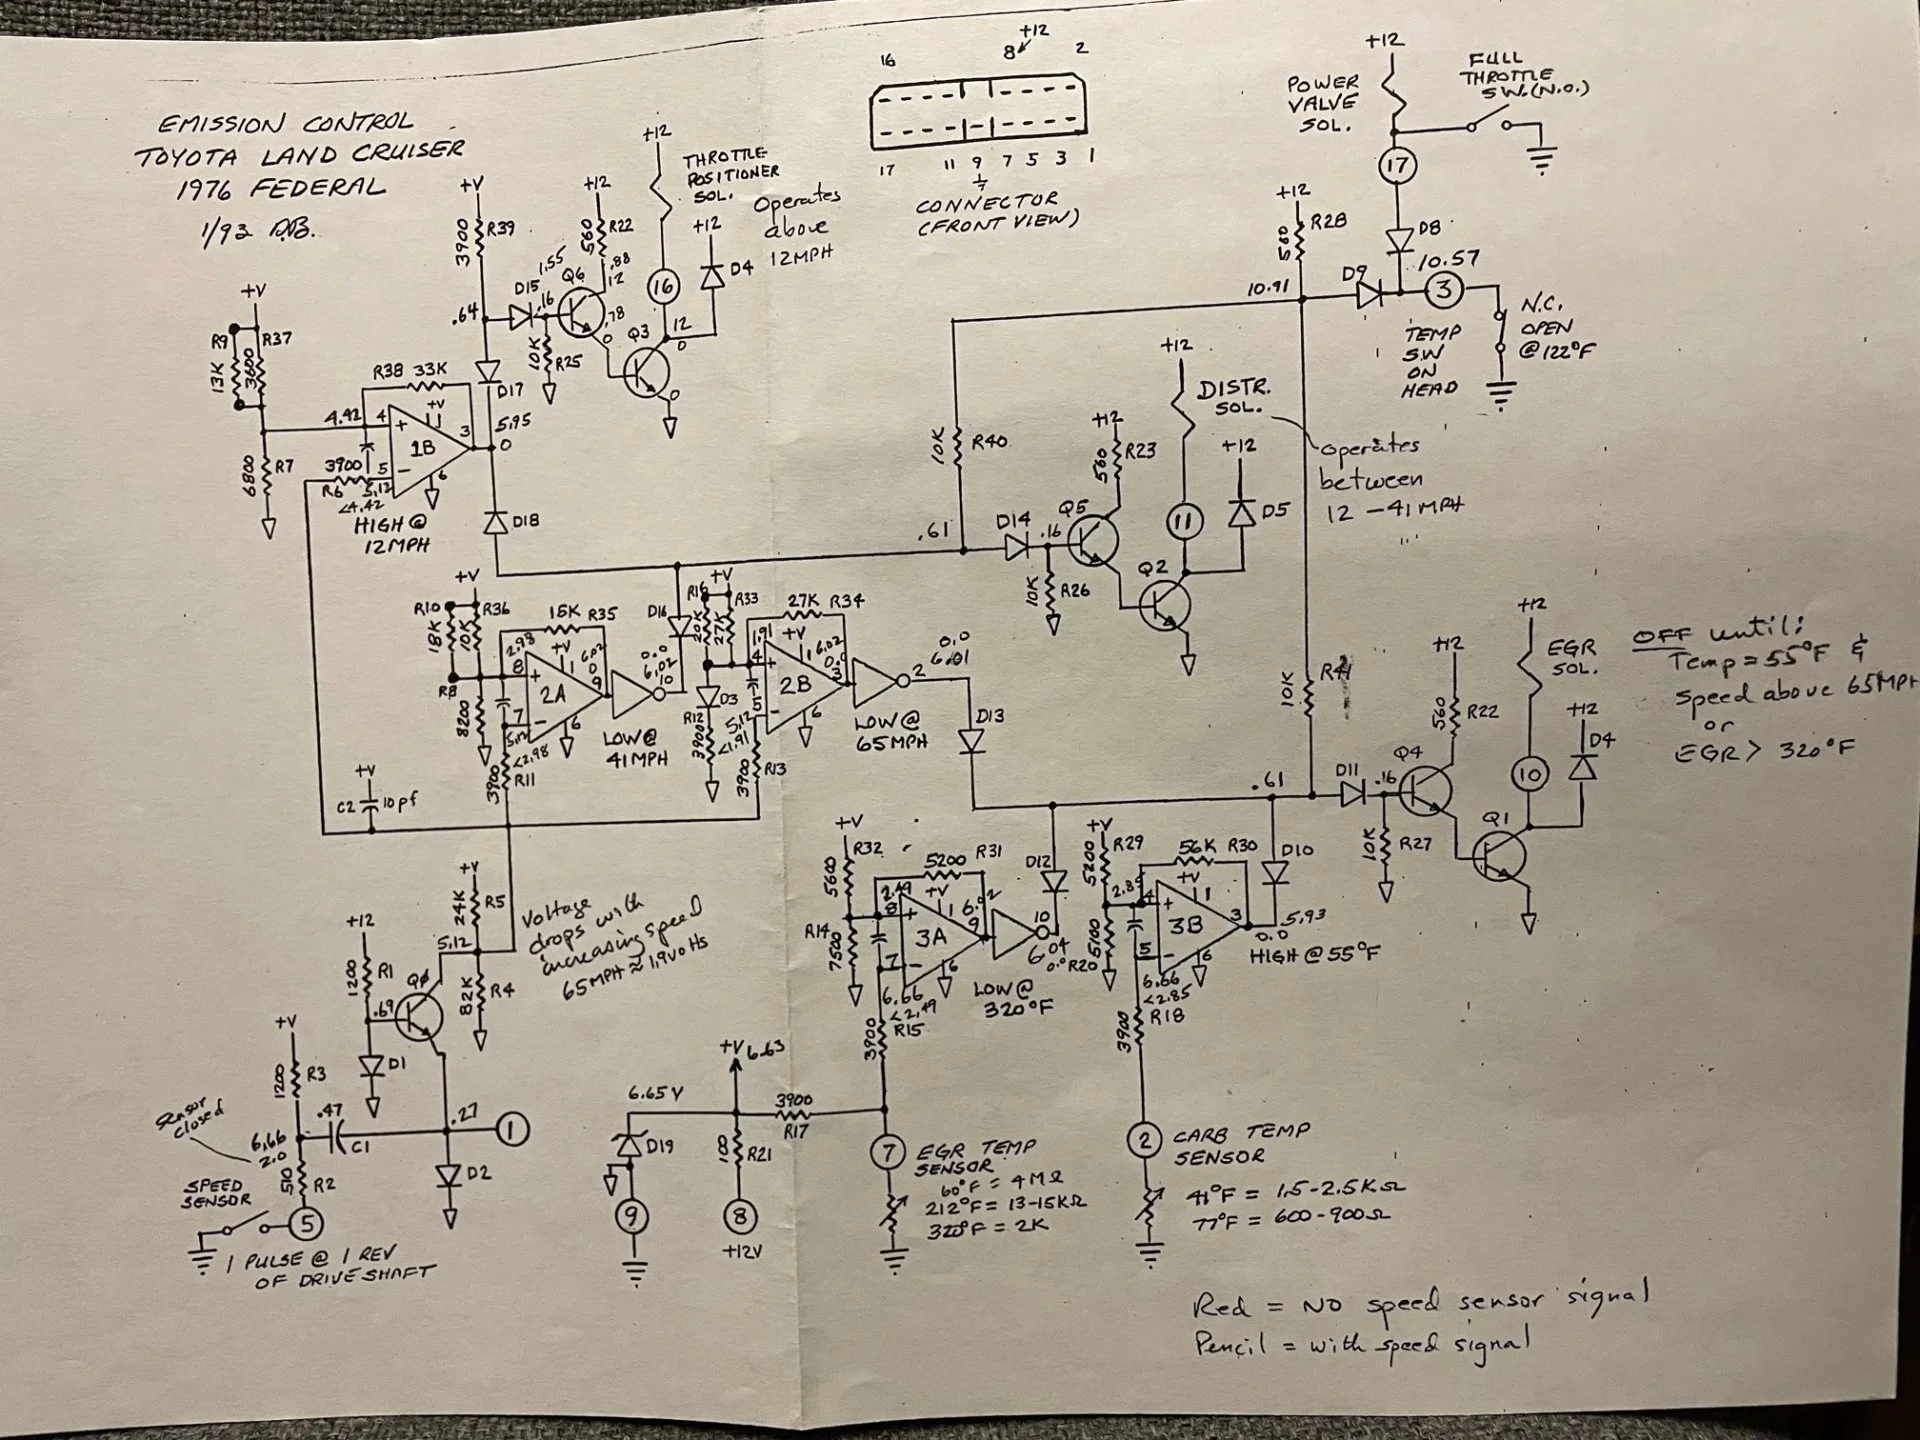 EMISSION CONTROL
TOYOTA LAND CRUISER
1976 FEDERAL
1/93 D.B.
+12
THROTTLE
POSITIONER
SOL.
Operates
above
12MPH
+V
3900
R39
+12
560
R22
.88
12
+12
D4
1.55
Q6
D15
.16
.64
.78
0
16
Q3
12
0
0
10K
R25
D17
16
8
+12
2
17
11
9
7
5
3
1
CONNECTOR
(FRONT VIEW)
+12
POWER
VALVE
SOL.
FULL
THROTTLE
SW.(N.O.)
17
+12
560
R28
D8
10.91
D9
10.57
3
TEMP
SW
ON
HEAD
N.C.
OPEN
@122°F
+V
R9
R37
13K
3600
R38
33K
+V
1
4.42
4
+
1B
3
5.95
0
6800
R7
3900
R6
5
-
5.12
<4.42
6
HIGH @
12MPH
D18
10K
R40
+12
DISTR.
SOL.
+12
560
R23
+12
Operates
between
12 - 41 MPH
11
D5
.61
D14
.16
Q5
Q2
10K
R26
+V
R10
R36
18K
10K
15K
R35
2.98
+V
1
6.02
0
8
+
2A
9
R8
8200
7
-
5.12
<2.98
6
3900
R11
LOW@
41MPH
D16
0.0
6.02
10
+V
R16
R33
20K
27K
27K
R34
1.91
+V
1
6.02
0.0
4
+
2B
3
D3
R12
3900
5
-
5.12
<1.91
6
3900
R13
2
0.0
6.01
LOW@
65MPH
D13
10K
R41
+12
EGR
SOL.
OFF until:
Temp = 55°F &
speed above 65MPH
or
EGR > 320°F
+12
560
R22
+12
D4
10
.61
D11
.16
Q4
Q1
10K
R27
+V
C2
10pf
+V
24K
R5
Voltage
drops with
increasing speed
65MPH ≈ 1.9volts
5.12
82K
R4
+12
1200
R1
QØ
.69
D1
+V
1200
R3
Sensor
closed
6.66
2.0
.47
C1
.27
1
D2
510
R2
SPEED
SENSOR
5
1 PULSE @ 1 REV
OF DRIVESHAFT
+V
R32
5600
5200
R31
2.49
+V
1
6.02
8
+
3A
9
R14
7500
7
-
6.66
<2.49
6
3900
R15
10
6.04
0.0
LOW@
320°F
D12
+V
R29
5200
56K
R30
2.85
+V
1
4
+
3B
3
5.93
0.0
R20
5100
5
-
6.66
<2.85
6
3900
R18
HIGH @ 55°F
D10
+V
6.63
6.65 V
D19
9
100
R21
8
+12V
3900
R17
7
EGR TEMP
SENSOR
60°F = 4MΩ
212°F = 13-15KΩ
320°F = 2K
2
CARB TEMP
SENSOR
41°F = 1.5-2.5KΩ
77°F = 600-900Ω
Red = No speed sensor signal
Pencil = with speed signal